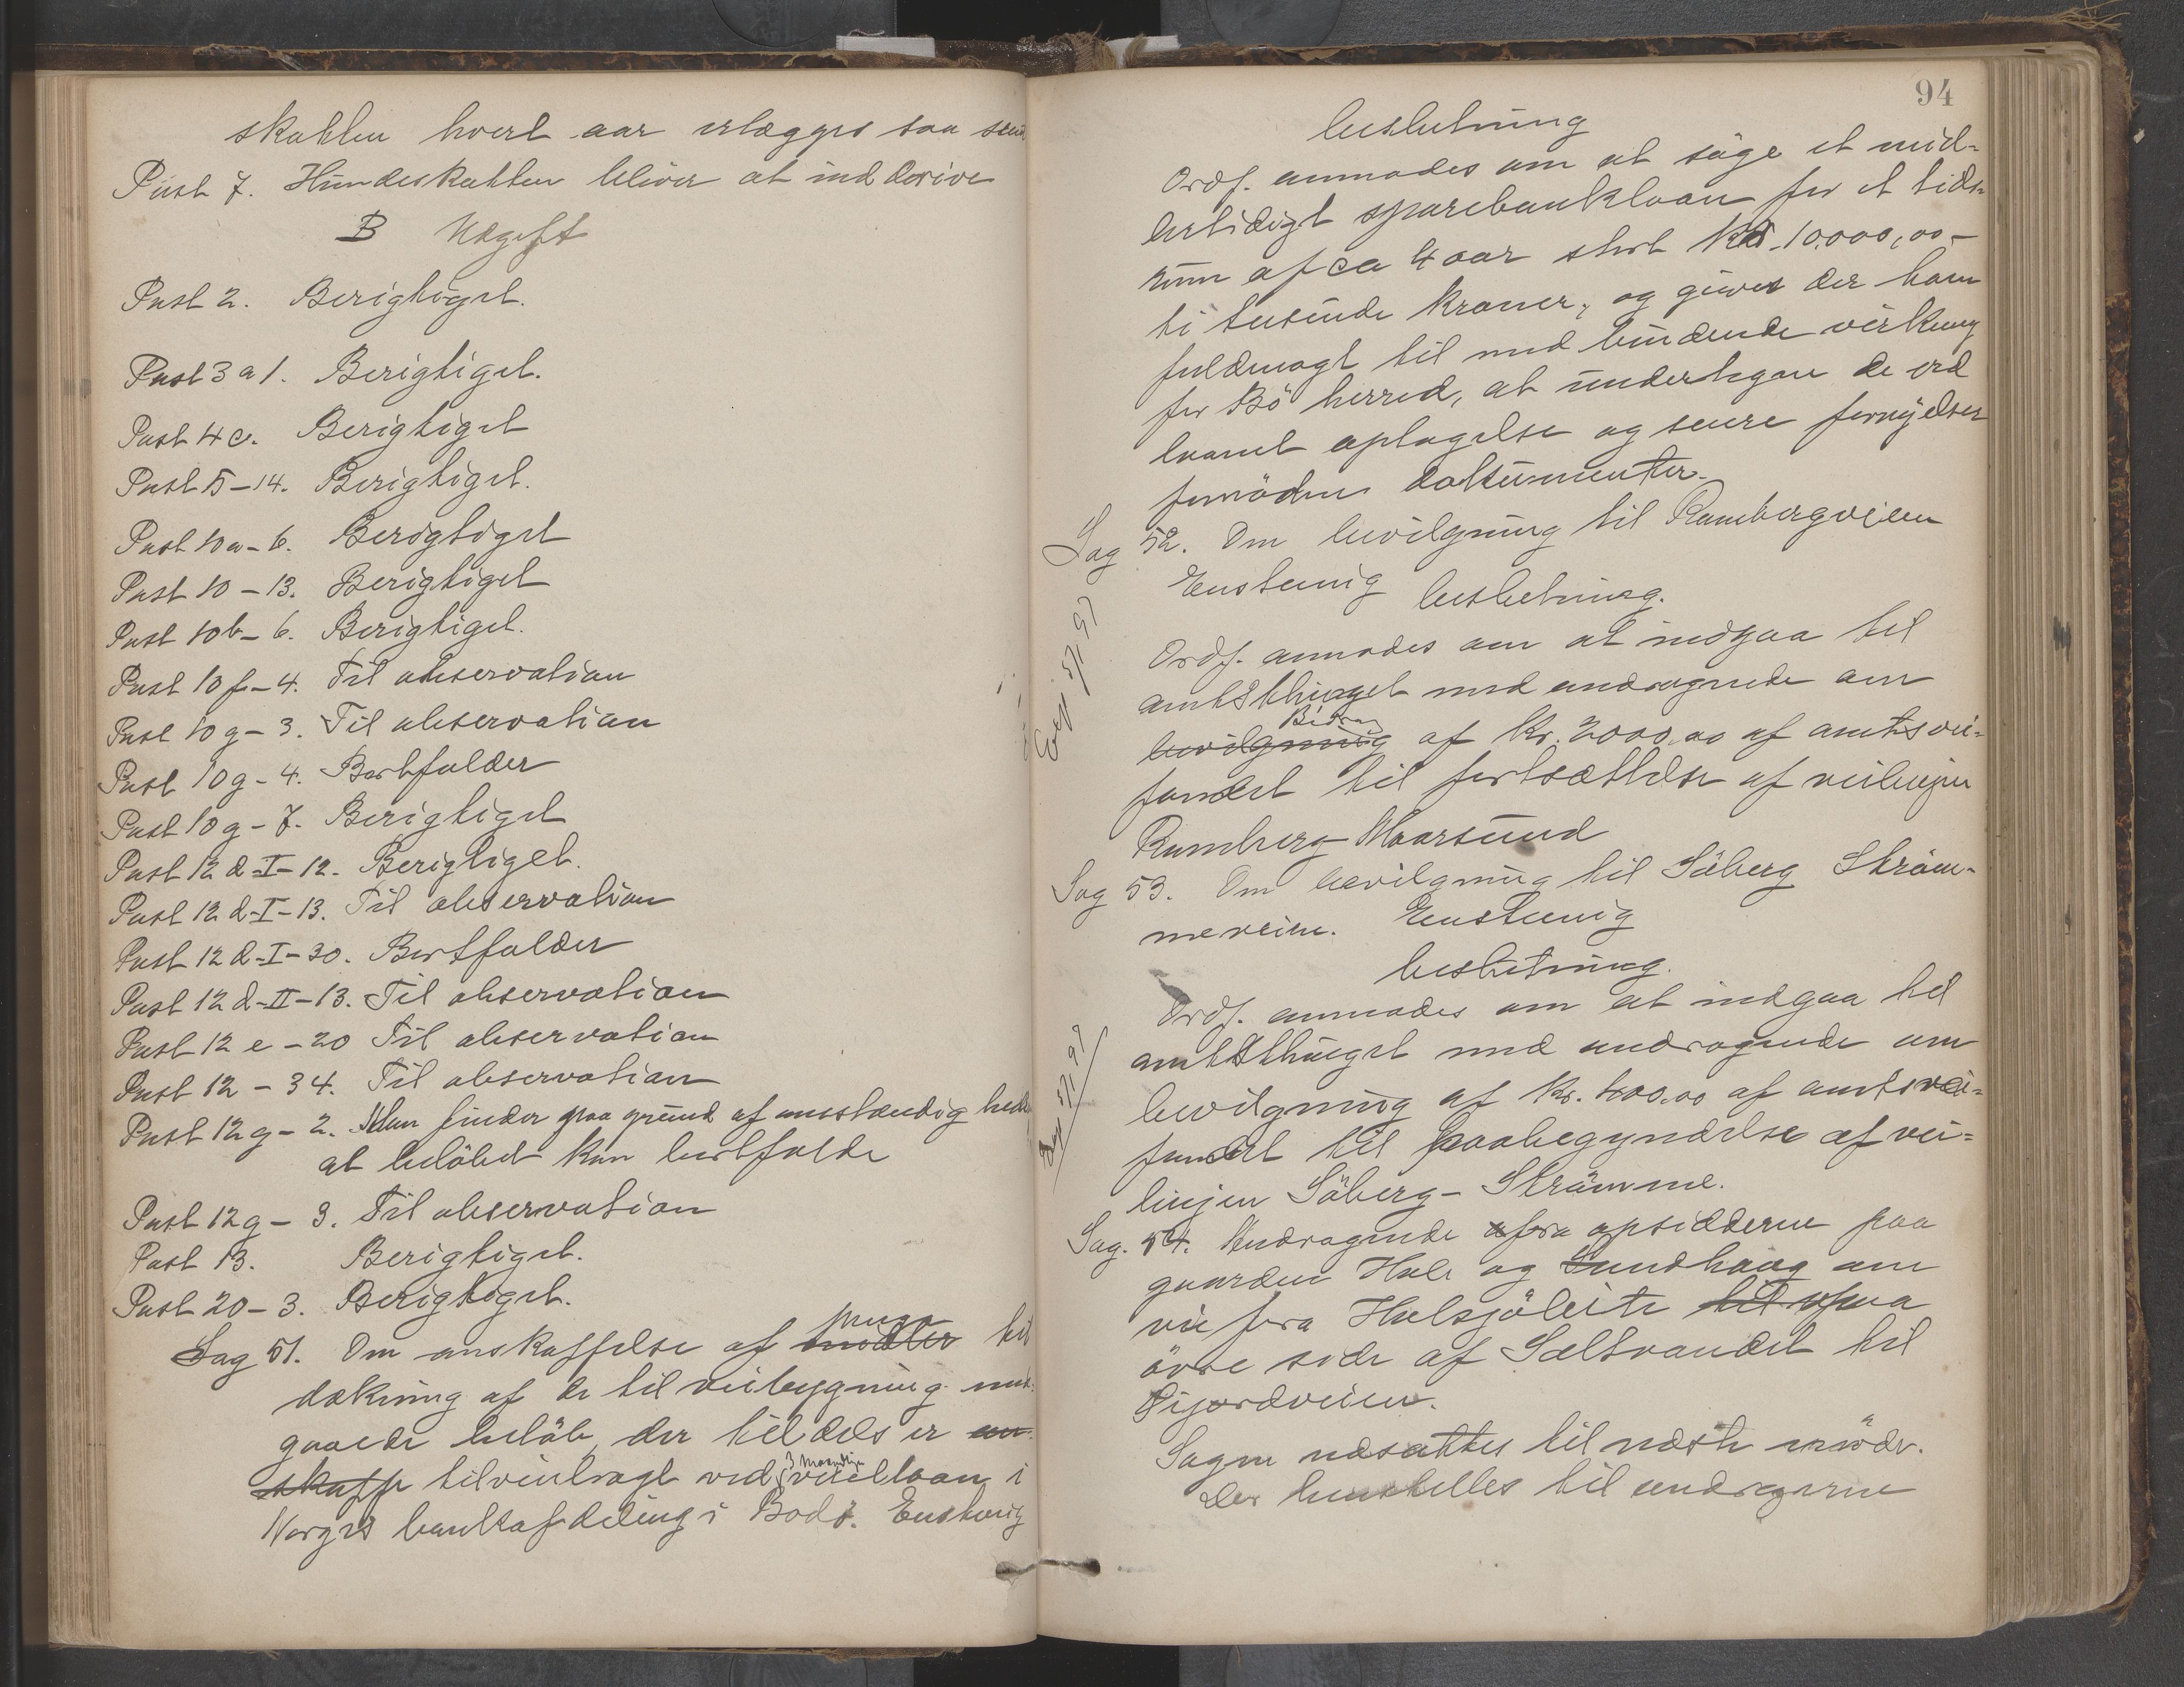 skatten hvert aar erlægges saa sent
Post 7. Hundeskatten bliver at inddrive
B Udgift
Post 2. Berigtiget.
Post 3 a 1. Berigtiget.
Post 4 c. Berigtiget
Post 5-14. Berigtiget.
Post 10 a - 6. Berigtiget
Post 10 - 13. Berigtiget
Post 10 b - 6. Berigtiget.
Post 10 f - 4. Til observation
Post 10 g - 3. Til observation
Post 10 g - 4. Bortfalder
Post 10 g - 7. Berigtiget
Post 12 d-I-12. Berigtiget.
Post 12 d-I-13. Til observation
Post 12 d-I-30. Bortfalder
Post 12 d-II-13. Til observation
Post 12 e - 20 Til observation
Post 12 - 34. Til observation
Post 12 g - 2. Man finder paa grund af omstændighed
at beløbet kan bortfalde
Post 12 g - 3. Til observation
Post 13. Berigtiget.
Post 20 - 3. Berigtiget.
penge
Sag 51. Om anskaffelse af midler til
dækning af de til veibygning med-
gaaede beløb, der tildels er an-
3 maanedlig
skaffe tilveiebragt ved vexellaan i
Norges bankafdeling i Bodø. Enstemig
94
beslutning
Ordf. anmodes om at søge et mid-
lertidigt sparebanklaan for et tids-
rum af ca 4 aar stort Kr. 10.000,00 -
ti tusinde kroner, og gives der ham
fuldmagt til med bindende virkning
for Bø herred, at undertegne de ved
laanet optagelse og senere fornyelser
fornødne dokumenter.
Sag 52. Om bevilgning til Rambergveien
Enstemig beslutning.
Ordf. anmodes om at indgaa til
amtsthinget med andragende om
Bidrag
bevilgning af Kr. 2000,00 af amtsvei-
fondet til fortsættelse af veilinjen
Ramberg-Skaarsund
Sag 53. Om bevilgning til Søberg Strøm-
meveien. Enstemig
beslutning.
Ordf. anmodes om at indgaa til
amtsthinget med andragende om
bevilgning af Kr. 400,00 af amtsvei-
fondet til paabegyndelse af vei-
linjen Søberg - Strømme.
Sag. 54. Andragende fra opsidderne paa
gaarden Hole og Sundhaug om
vei fra Holsjøleite til
øvre side af Saltvandet til
Fjordveien.
Sagen udsættes til næste møde.
Der henstilles til andragerne